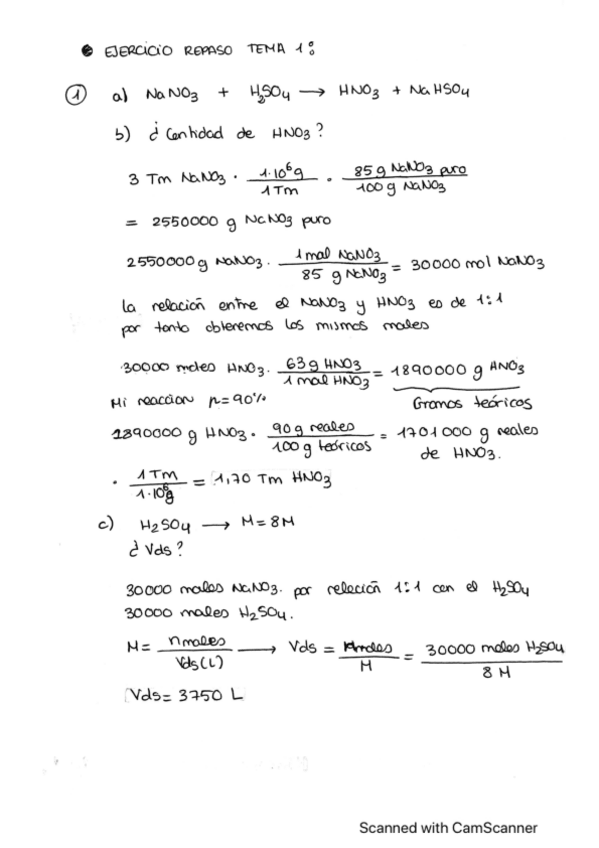 • EJERCICIO REPASO TEMA 1:
① a) NaNO3 + H2SO4 → HNO3 + NaHSO4
b) ¿Cantidad de HNO3?
3 Tm NaNO3 · 1·10^6 g / 1 Tm · 85 g NaNO3 puro / 100 g NaNO3
= 2550000 g NaNO3 puro
2550000 g NaNO3 · 1 mol NaNO3 / 85 g NaNO3 = 30000 mol NaNO3
La relación entre el NaNO3 y HNO3 es de 1:1
por tanto obtenemos los mismos moles
30000 moles HNO3 · 63 g HNO3 / 1 mol HNO3 = 1890000 g HNO3
Mi reaccion η=90% Gramos teóricos
1890000 g HNO3 · 90 g reales / 100 g teóricos = 1701000 g reales
de HNO3.
· 1 Tm / 1·10^6 g = 1,70 Tm HNO3
c) H2SO4 → M = 8M
¿Vds?
30000 moles NaNO3. por relación 1:1 con el H2SO4
30000 moles H2SO4.
M = nmoles / Vds(L) → Vds = nmoles / M = 30000 moles H2SO4 / 8 M
Vds = 3750 L
Scanned with CamScanner